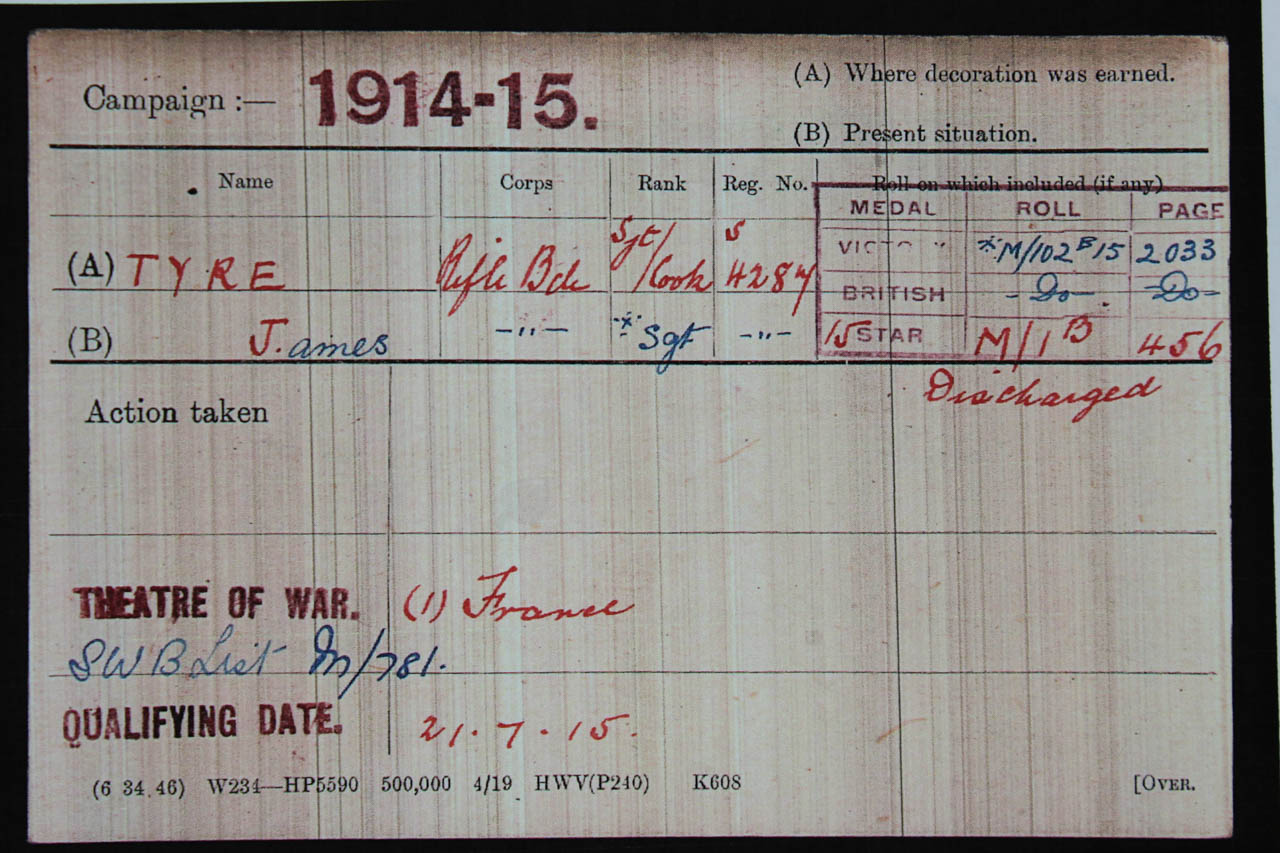 Campaign :— 1914-15.
(A) Where decoration was earned.
(B) Present situation.
Name Corps Rank Reg. No. Roll on which included (if any)
MEDAL ROLL PAGE
(A) TYRE Rifle Bde Sgt/Cook S 4287
VICTORY *M/102 B 15 2033
BRITISH -Do- -Do-
(B) J.ames —"— * Sgt —"—
15 STAR M/1 B 456
Discharged
Action taken
THEATRE OF WAR. (1) France
SWB List M/781.
QUALIFYING DATE. 21.7.15.
(6 34.46) W234—HP5590 500,000 4/19 HWV(P240) K608 [OVER.